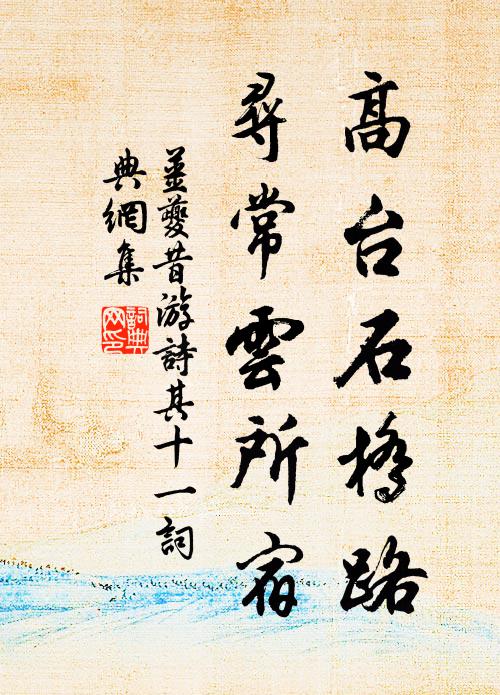 高台石橋路
尋常雲所宿
姜夔昔游詩其十一詞
典網集
詞典
网印